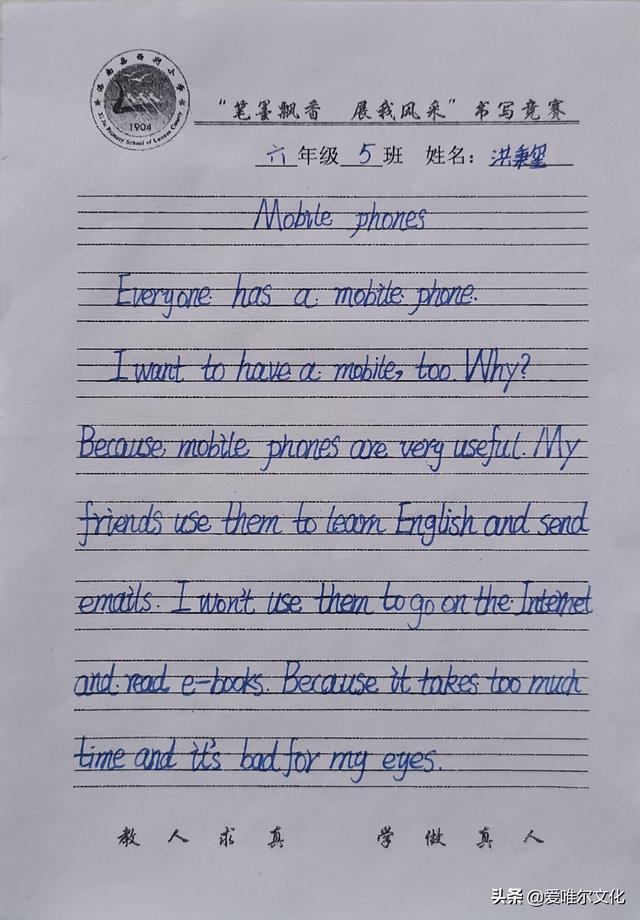 1904
Xi Jie Primary School of Luonan County
“笔墨飘香 展我风采”书写竞赛
六年级 5 班 姓名：洪秉玺
Mobile phones
Everyone has a mobile phone.
I want to have a mobile, too. Why?
Because mobile phones are very useful. My
friends use them to learn English and send
emails. I won't use them to go on the Internet
and read e-books. Because it takes too much
time and it's bad for my eyes.
教人求真 学做真人
头条 @爱唯尔文化